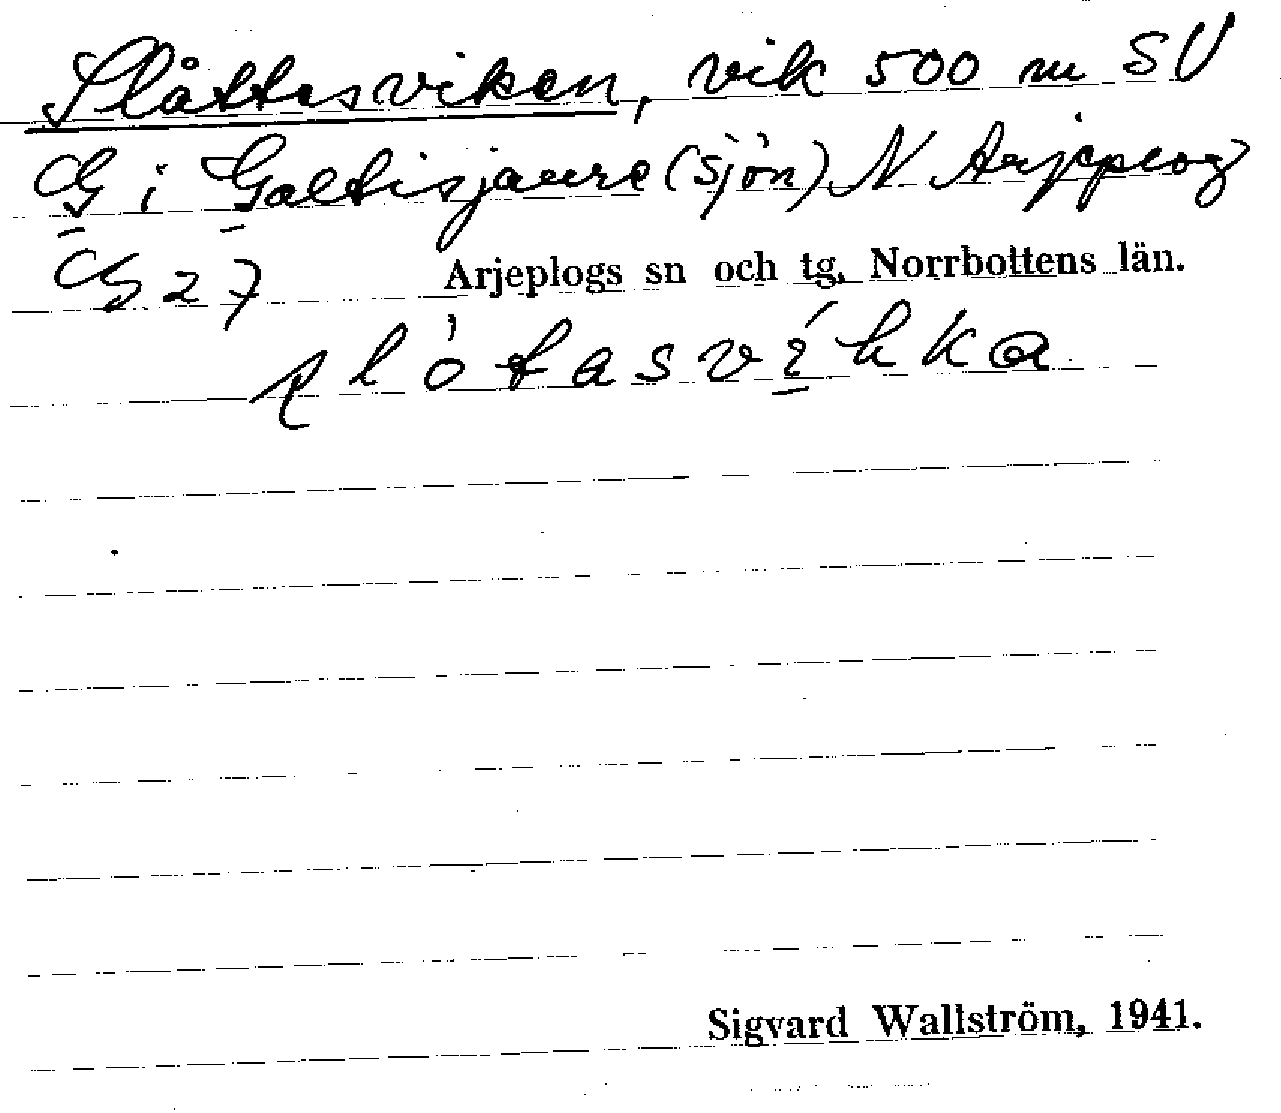 Slåttesviken, vik 500 m SV
G i Galtisjaure (sjön) N Arjeplog
G 27 Arjeplogs sn och tg, Norrbottens län.
slòtasvíhka
Sigvard Wallström, 1941.